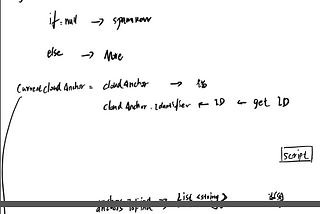 if: null → spawn new
else → Move
CurrentCloudAnchor = cloudAnchor →
cloudAnchor.Identifier ← ID ← get ID
script
anchors to find → List <string>